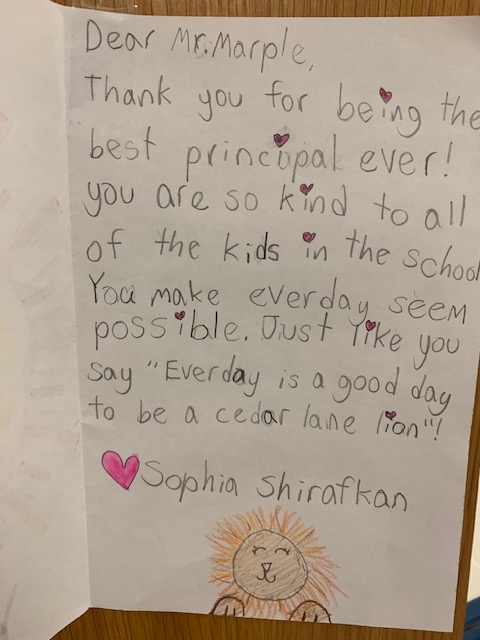 Dear Mr. Marple,
Thank you for being the
best principal ever!
you are so kind to all
of the kids in the school
You make everday seem
possible. Just like you
say "Everday is a good day
to be a cedar lane lion"!
Sophia Shirafkan